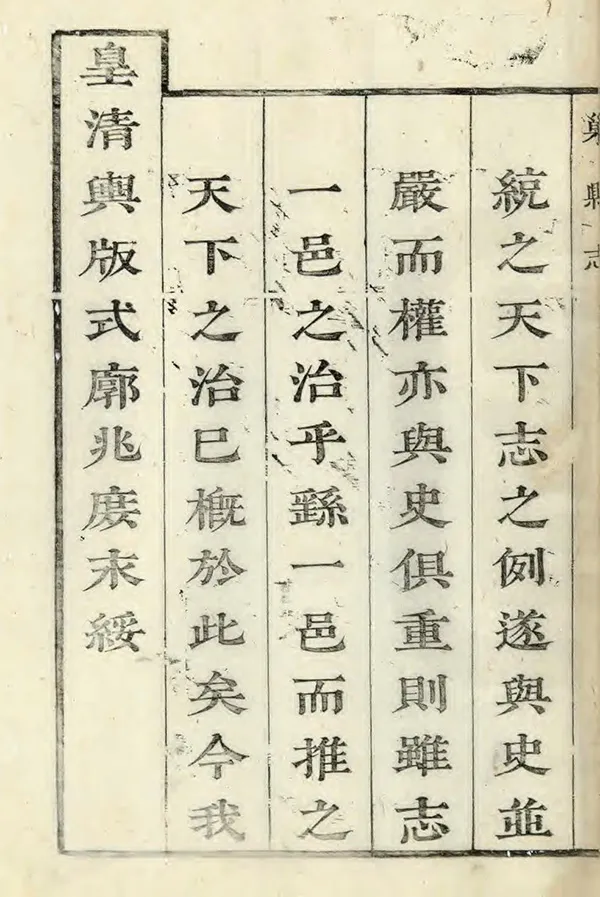 巢縣志
統之天下志之例遂與史並
嚴而權亦與史俱重則雖志
一邑之治乎繇一邑而推之
天下之治巳槪於此矣今我
皇清輿版式廓兆庶末綏